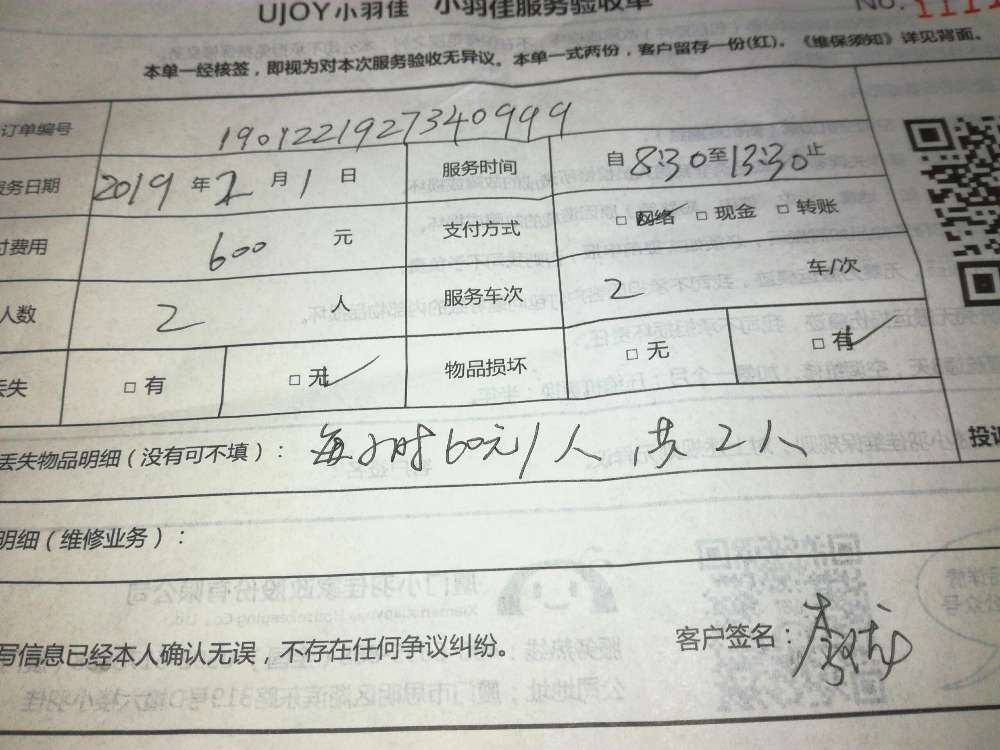 UJOY小羽佳 小羽佳服务验收单
No.1111
本单一经核签，即视为对本次服务验收无异议。本单一式两份，客户留存一份(红)。《维保须知》详见背面。
订单编号 1901221927340999
服务日期 2019 年 2 月 1 日 服务时间 自 8:30 至 13:30 止
付费用 600 元 支付方式 □ 网络 □ 现金 □ 转账
人数 2 人 服务车次 2 车/次
丢失 □ 有 □ 无 物品损坏 □ 无 □ 有
丢失物品明细（没有可不填）： 每小时60元/人 共2人
投
明细（维修业务）：
写信息已经本人确认无误，不存在任何争议纠纷。
客户签名：